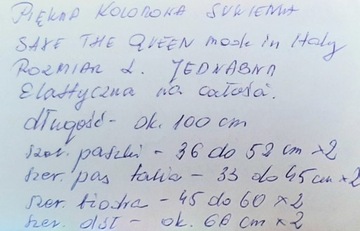 PIĘKNA KOLOROWA SUKIENKA
SAVE THE QUEEN made in Italy
ROZMIAR L. JEDWABNA
Elastyczna na całości.
długość - ok. 100 cm
szer. paszki - 36 do 52 cm x2
szer. pas talia - 33 do 45 cm x2
szer. biodra - 45 do 60 x2
szer. dół - ok. 60 cm x2